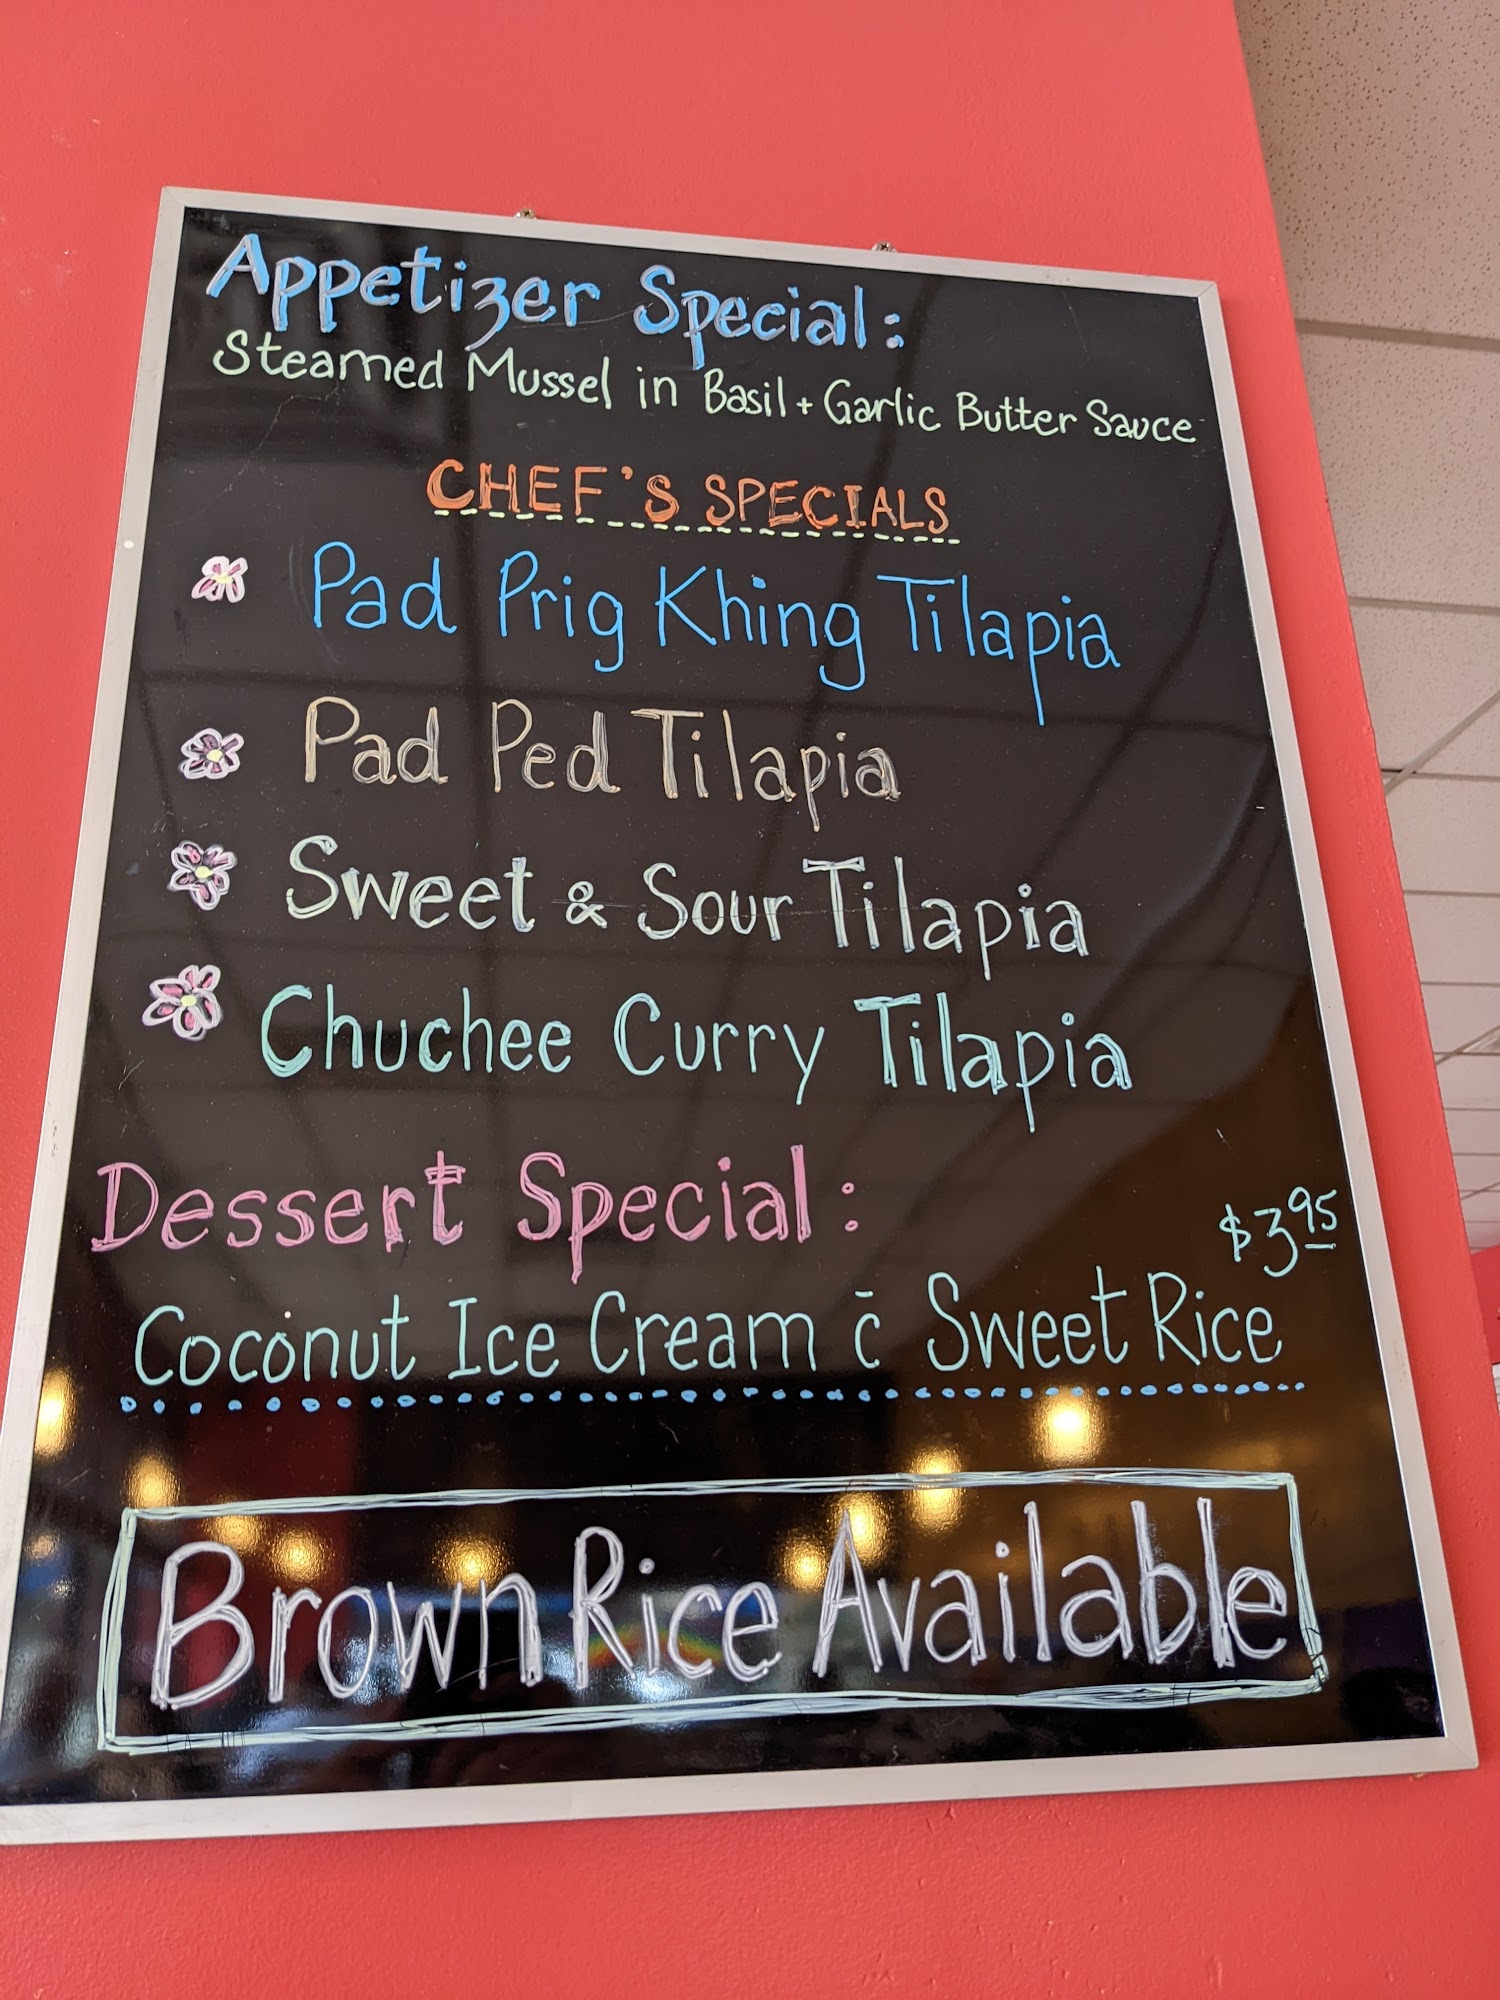 Appetizer Special:
Steamed Mussel in Basil + Garlic Butter Sauce
CHEF'S SPECIALS
Pad Prig Khing Tilapia
Pad Ped Tilapia
Sweet & Sour Tilapia
Chuchee Curry Tilapia
Dessert Special:
$3.95
Coconut Ice Cream c̄ Sweet Rice
Brown Rice Available